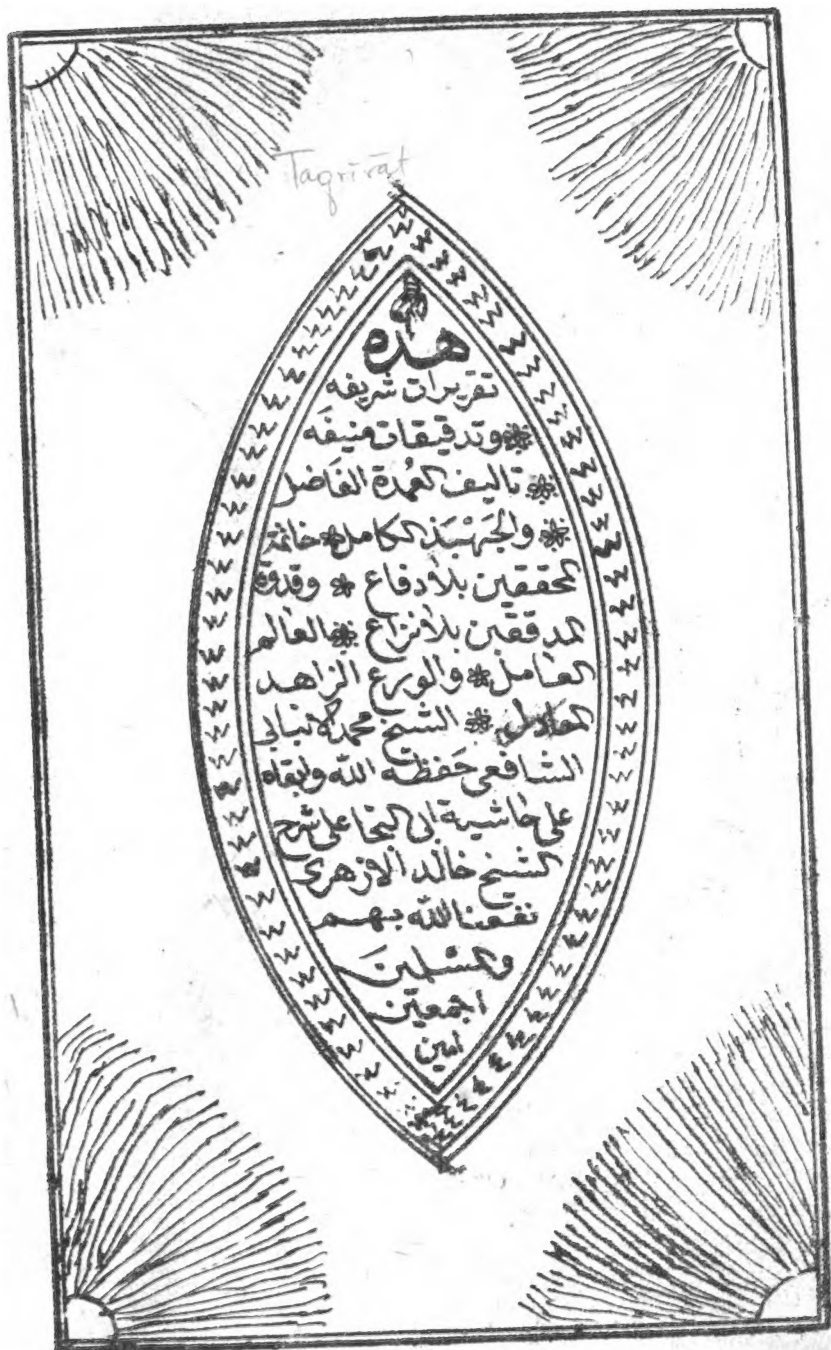 Taqrīrāt
هذه
تقريرات شريفه
* وتدقيقات منيفَه
* تاليف العُمدة الفَاضل
* والجَهْبَذ الكامل * خاتمة
المحققين بلا دفاع * وقدوة
المدققين بلا نزاع * العالم
العامل * والورع الزاهد
* الشيخ محمد الانبابي
الشافعى حَفظه الله وابقاه
على حاشية ابى النجا على شرح
الشيخ خالد الازهرى
نفعنا الله بهم
والمسلمينَ
اجمعين
امين